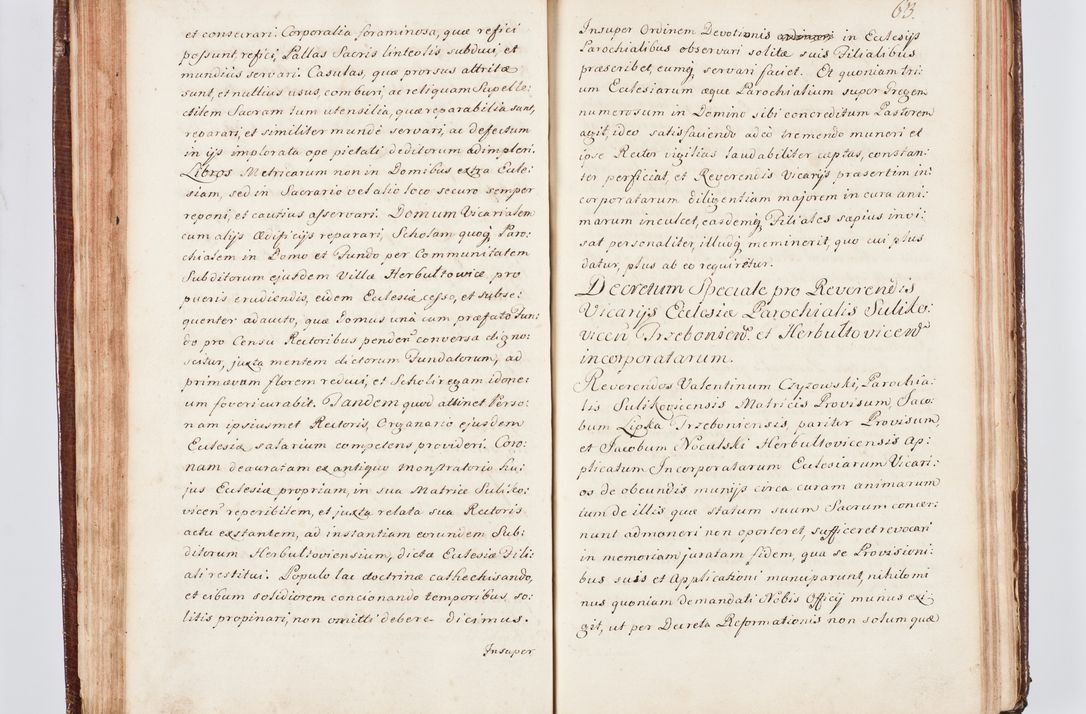 et consecrari. Corporalia foraminosa, quæ refici
possunt refici, Pallas Sacris linteolis subdui, et
mundiùs servari. Casulas, quæ prorsus attritæ
sunt, et nullius usus, comburi, ac reliquam Supelle:
ctilem Sacram tum utensilia, quæ reparabilia sunt,
reparari, et similiter mundè servari, ac defectum
in ijs implorata ope pietati deditorum adimpleri.
Libros Metricarum non in Domibus extra Eccle:
siam, sed in Sacrario vel alio loco securo semper
reponi, et cautius asservari. Domum Vicarialem
cum alijs Ædificijs reparari, Scholam quoq3 Paro:
chialem in Domo et Fundo per Communitatem
Subditorum ejusdem Villæ Herbultowicæ, pro
pueris erudiendis, eidem Ecclesiæ cesso, et subse:
quenter adaucto, quæ Domus unà cum præfato Fun:
do pro Censu Rectoribus penden: conversa digno:
scitur, juxta mentem dictorum Fundatorum, ad
primævum florem reduci, et Scholiregam idone:
um foveri curabit. Tandem quod attinet Perso:
nam ipsiusmet Rectoris, Organario ejusdem
Ecclesiæ salarium competens provideri. Coro:
nam deauratam ex antiquo monstratorio hu:
jus Ecclesiæ propriam, in sua Matrice Suliko:
vicen: reperibilem, et juxta relata sua Rectoris
actu exstantem, ad instantiam eorundem Sub:
ditorum Herbultoviensium, dictæ Ecclesiæ Fili:
ali restitui. Populo lac doctrinæ cathechisando,
et cibum solidiorem concionando temporibus so:
litis propinari, non omitti debere dicimus.
Insuper
63.
Insuper Ordinem Devotionis in Ecclesijs
Parochialibus observari solitæ suis Filialibus
præscribet, eumq3 servari faciet. Et quoniam tri:
um Ecclesiarum æque Parochialium super Gregem
numerosum in Domino sibi concreditum Pastorem
agit, ideo satisfaciendo adeò tremendo muneri et
ipse Rector vigilias laudabiliter cæptas, constan:
ter perficiat, et Reverendis Vicarijs præsertim in:
corporatarum diligentiam majorem in cura ani:
marum inculcet, easdemq3 Filiales sæpius invi:
sat personaliter, illudq3 meminerit, quo cui plus
datur, plus ab eo requiretur.
Decretum Speciale pro Reverendis
Vicarijs Ecclesiæ Parochialis Suliko:
vicen: Trzebonien: et Herbultovicen:
incorporatarum.
Reverendos Valentinum Czyzowski, Parochia:
lis Sulikovicensis Matricis Provisum, Jaco:
bum Lipka Trzeboniensis, pariter Provisum,
et Jacobum Noculski Herbultovicensis Ap:
plicatum Incorporatarum Ecclesiarum Vicari:
os de obeundis munijs circa curam animarum
tum de illis quæ statum suum Sacrum concer:
nunt admoneri non oporteret, sufficeret revocari
in memoriam juratam fidem, qua se Provisioni:
bus suis et Applicationi manciparunt, nihilomi
nus quoniam demandati Nobis Officij munus exi:
git, ut per Decreta Reformationis non solum quæ